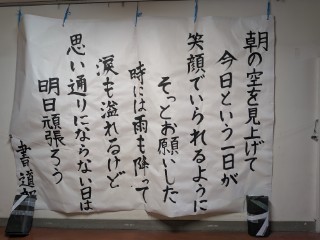 朝の空を見上げて
今日という一日が
笑顔でいられるように
そっとお願いした
時には雨も降って
涙も溢れるけど
思い通りにならない日は
明日頑張ろう
書道部